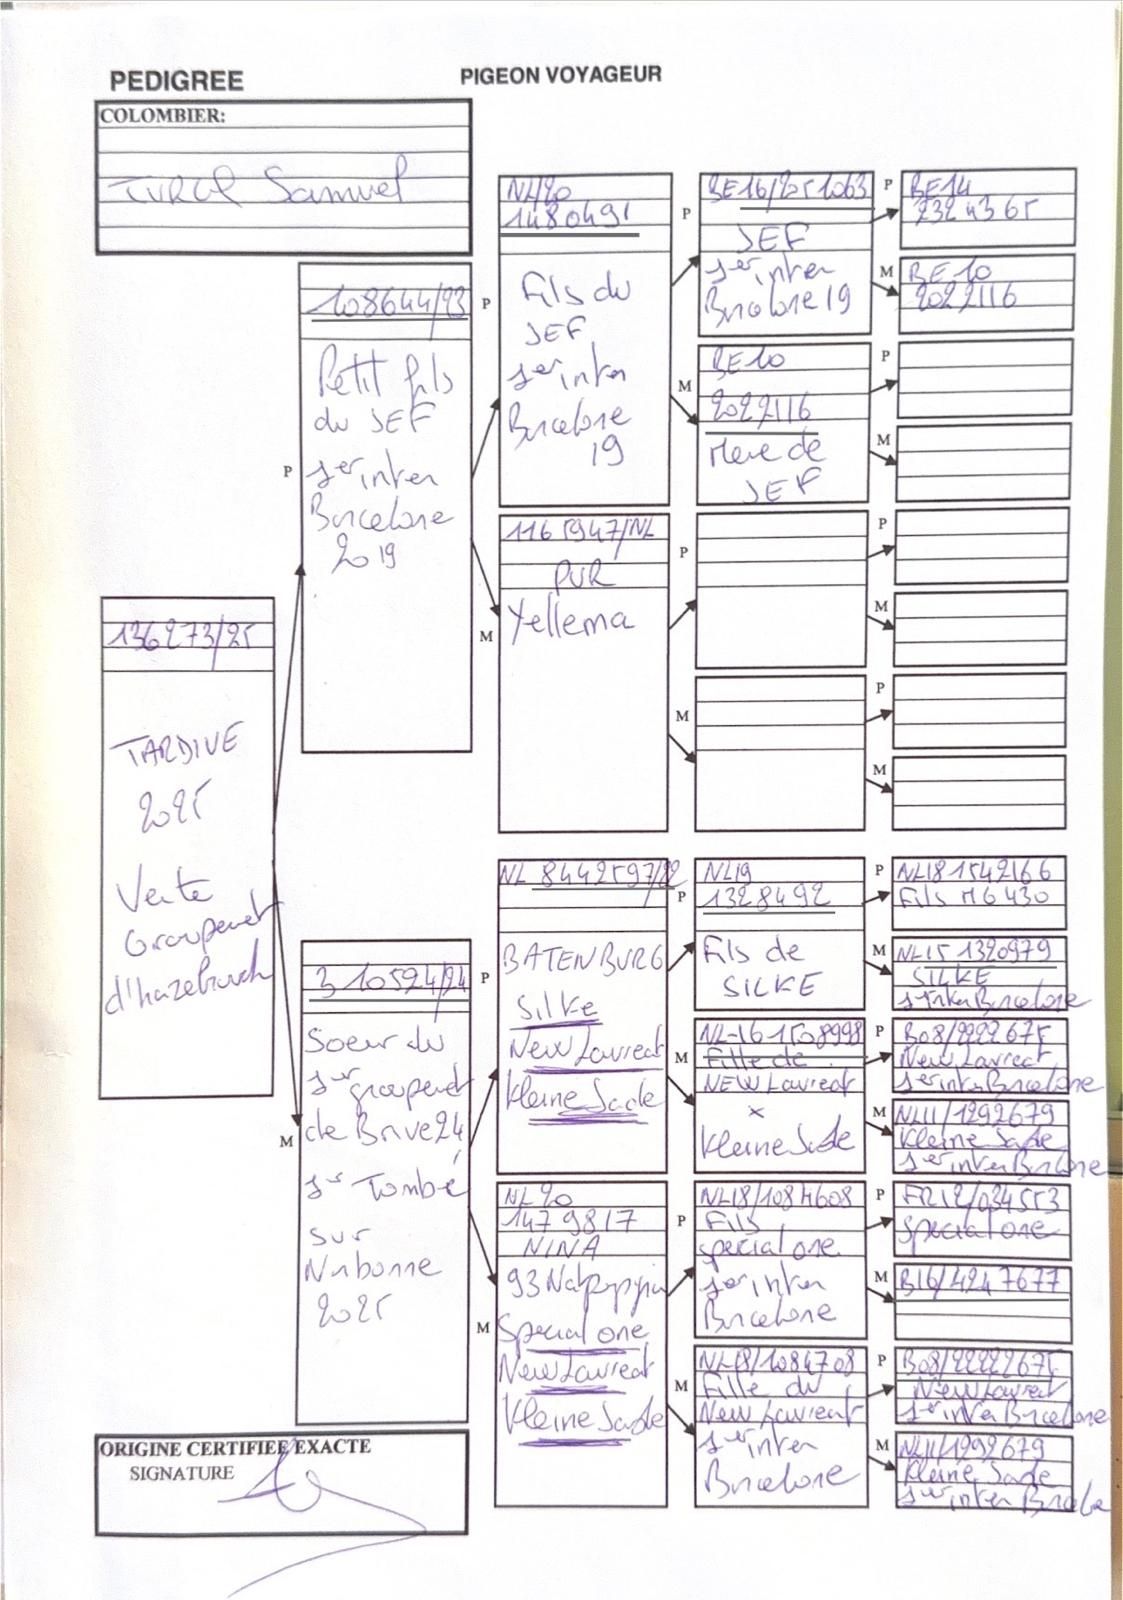 PEDIGREE
PIGEON VOYAGEUR
COLOMBIER:
Samuel
136273/25
TARDIVE
2025
Vente
Groupement
d'hazebrouck
P
108644/23
Petit fils
du JEF
1er inter
Barcelone
2019
M
310524/24
Soeur du
1er groupement
de Brive 24
1er Tombé
sur
Narbonne
2025
P
NL/20
1480491
Fils du
JEF
1er inter
Barcelone
19
M
1165947/NL
PUR
Yellema
P
NL 8442597/22
BATENBURG
Silke
New Laureat
Kleine Jade
M
NL 20
1479817
NINA
93 Nat
Special one
New Laureat
Kleine Jade
P
BE16/2051063
JEF
1er inter
Barcelone 19
M
BE10
2022116
Mere de
JEF
P
M
P
NL19
1328492
Fils de
SILKE
M
NL-16 1508998
Fille de
NEW Laureat
x
Kleine Jade
P
NL18/1084608
Fils
special one
1er inter
Barcelone
M
NL18/1084708
Fille du
New Laureat
1er inter
Barcelone
P
BE14
2324365
M
BE10
2022116
P
M
P
M
P
M
P
NL18 1542166
Fils
M
NL15 1320979
SILKE
1er inter Barcelone
P
B08/2222675
New Laureat
1er inter Barcelone
M
NL11/1292679
Kleine Jade
1er inter Barcelone
P
FR12/034553
Special one
M
B16/4247677
P
B08/22222675
New Laureat
1er inter Barcelone
M
NL11/1292679
Kleine Jade
1er inter
ORIGINE CERTIFIEE EXACTE
SIGNATURE